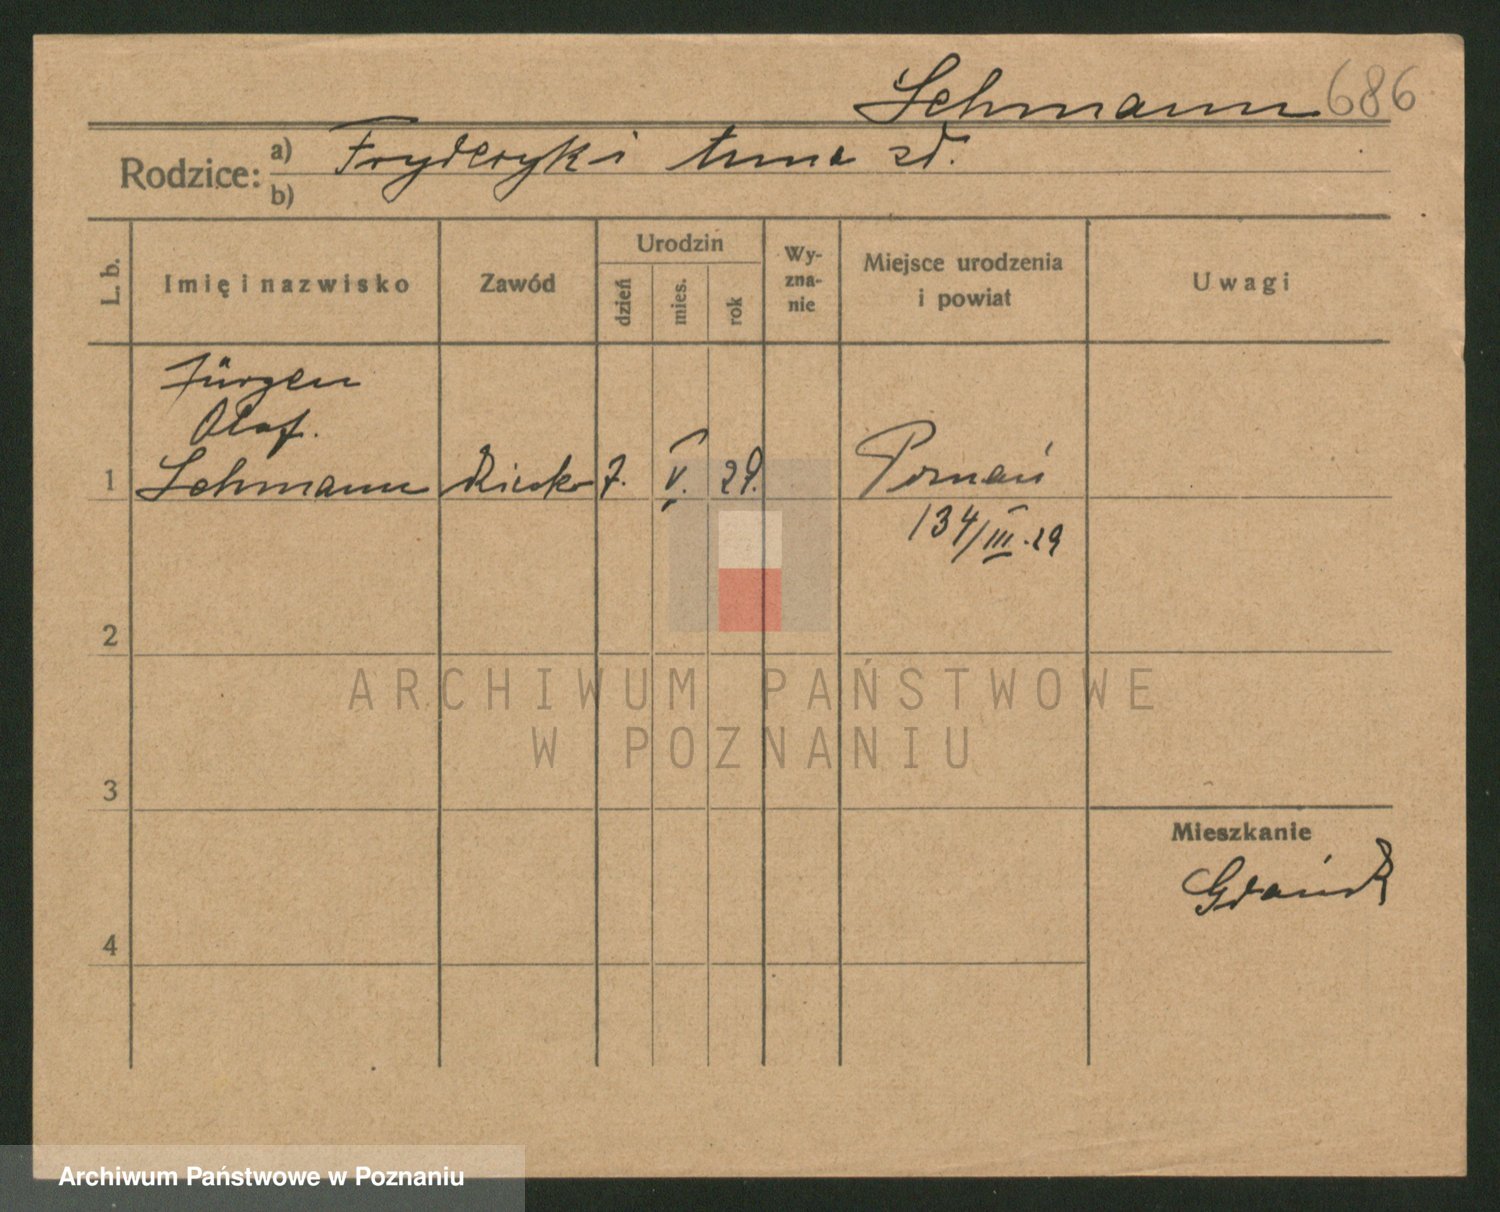 Lehmann 686
Rodzice: a) Fryderyk i Anna zd.
b)
L. b. Imię i nazwisko Zawód Urodzin dzień mies. rok Wy-zna-nie Miejsce urodzenia i powiat Uwagi
Jürgen
Olaf.
1 Lehmann 7. V. 29. Poznań
134/III.29
2
ARCHIWUM PAŃSTWOWE
W POZNANIU
3
Mieszkanie
Gdańsk
4
Archiwum Państwowe w Poznaniu